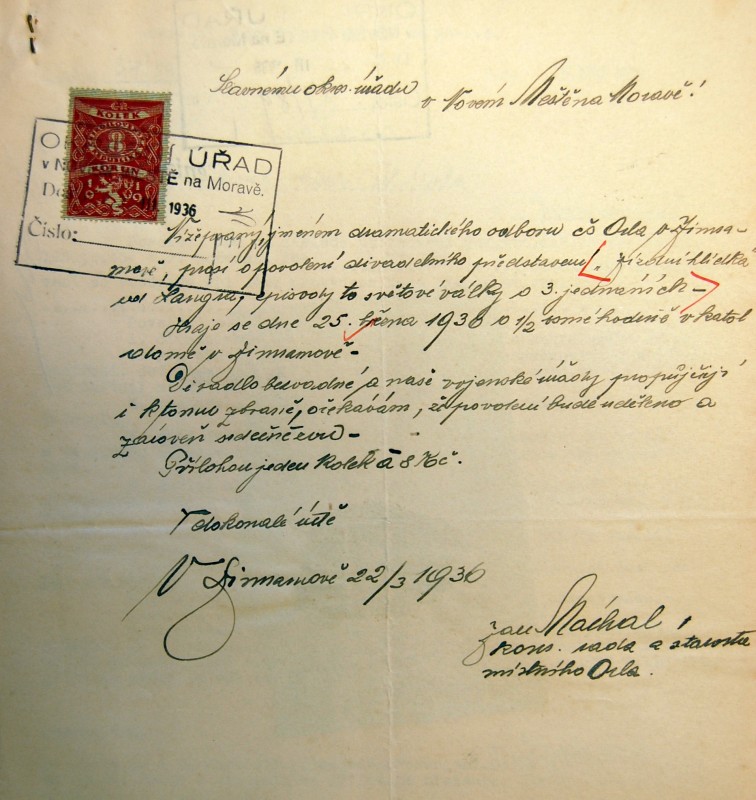 Slavnému okres. úřadu
v Novém Městě na Moravě!
KOLEK
8
KORUN
1919
O ÚŘAD
v N na Moravě.
1936
Číslo:
Níže psaný, jménem dramatického odboru čs Orla v Zinsa-
mově, prosí o povolení divadelního představení, „Zimní hlídka
od Langra, episody to světové války o 3. jednáních –
Hraje se dne 25. března 1936 o 1/2 osmé hodině v katol
domě v Zinsamově –
Divadlo bezvadné, a naše vojenské úřady propůjčují
i k tomu zbraně, očekávám, že povolení bude uděleno a
zároveň srdečně zvu –
Přílohou jeden kolek à 8 Kč.
V dokonalé úctě
V 22/3 1936
Jan Máchal
kons. rada a starosta
místního Orla.